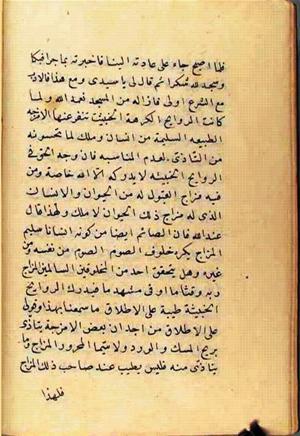 فلما اصبح جاء على عادته الينا فاخبرته بما جرا فبكا
وسجد لله شكرا ثم قال لى يا سيدى ومع هذا فالادب
مع الشرع اولى فازاله من المسجد فرحمه الله ولما
كانت الروايح الكرهة الخبيثة تنفر عنها الامزجة
الطبيعه السليمة من انسان وملك لما تحسونه
من التاذى لعدم المناسبه فان وجه الحق فى
الروايح الخبيثه لا يدركه الا الله خاصة ومن
فيه مزاج القبول له من الحيوان والانسان
الذى له مزاج ذلك الحيوان لا ملك ولهذا قال
عند الله فان الصائم ايضا من كونه انسانا سليم
المزاج يكره خلوف الصوم الصوم من نفسه ومن
غيره وهل يتحقق احد من المخلوقين السالمين المزاج
بربه وقتا ما او فى مشهد ما فيدرك الروايح
الخبيثة طيبة على الاطلاق ما سمعنا بهذا وقولى
على الاطلاق من اجل ان بعض الامزجة يتاذى
بريح المسك والورد ولا سيما المحرور المزاج وما
يتاذى منه فليس بطيب عند صاحب ذلك المزاج
فلهذا